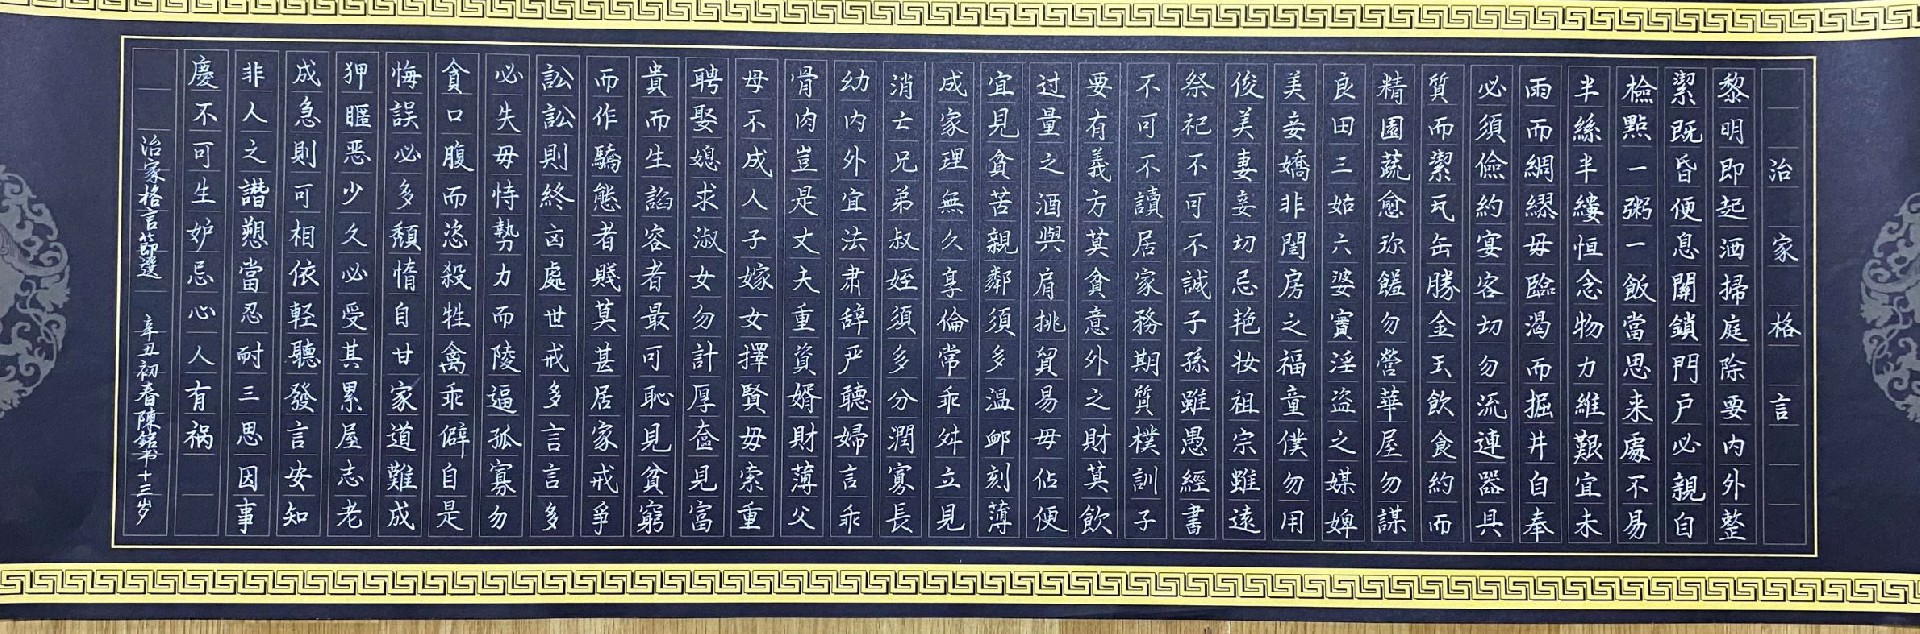 治家格言
黎明即起洒掃庭除要内外整
潔既昏便息關鎖門戸必親自
檢點一粥一飯當思来處不易
半絲半縷恒念物力維艱宜未
雨而綢繆毋臨渴而掘井自奉
必須儉約宴客切勿流連器具
質而潔瓦缶勝金玉飲食約而
精園蔬愈珍饈勿營華屋勿謀
良田三姑六婆實淫盗之媒婢
美妾嬌非閨房之福童僕勿用
俊美妻妾切忌艳妆祖宗雖遠
祭祀不可不誠子孫雖愚經書
不可不讀居家務期質樸訓子
要有義方莫貪意外之財莫飲
过量之酒與肩挑貿易毋佔便
宜見貪苦親鄰須多温邮刻薄
成家理無久享倫常乖舛立見
消亡兄弟叔姪須多分潤寡長
幼内外宜法肃辞严聽婦言乖
骨肉豈是丈夫重資婿財薄父
母不成人子嫁女擇賢毋索重
聘娶媳求淑女勿計厚奩見富
貴而生諂容者最可恥見貧窮
而作驕態者賤莫甚居家戒爭
訟訟則終凶處世戒多言言多
必失毋恃勢力而陵逼孤寡勿
貪口腹而恣殺牲禽乖僻自是
悔誤必多頹惰自甘家道難成
狎暱恶少久必受其累屋志老
成急則可相依輕聽發言安知
非人之譖愬當忍耐三思因事
慶不可生妒忌心人有祸
治家格言節選 辛丑初春陳銘书十三岁